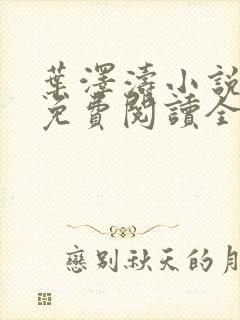 葉澤濤小說
免費閱讀全
戀別秋天的月